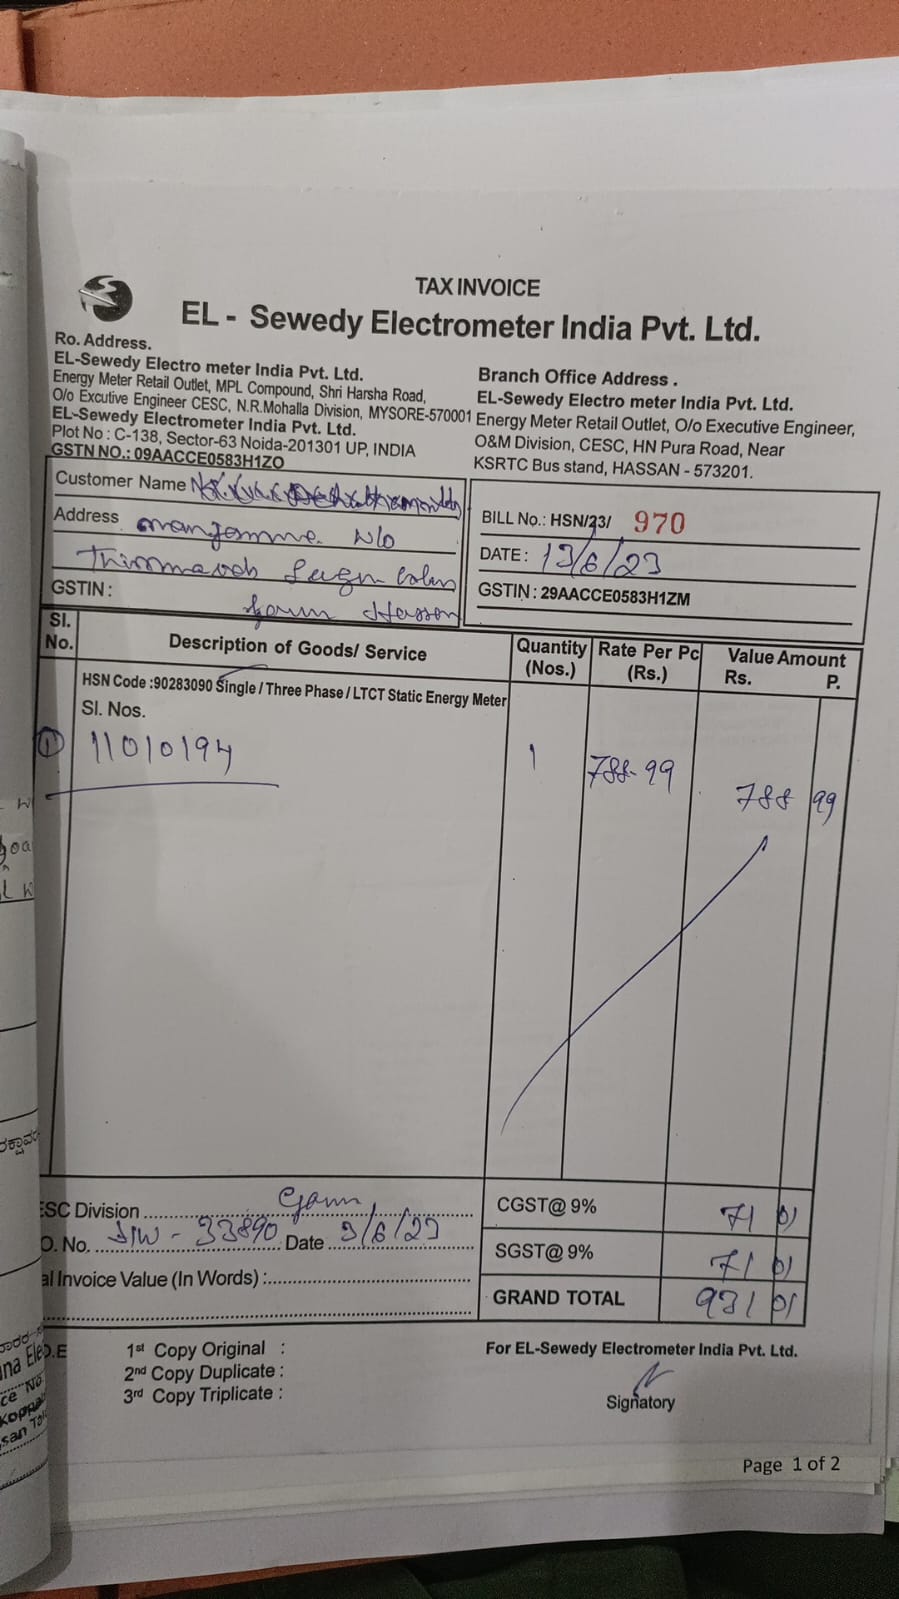 TAX INVOICE
EL - Sewedy Electrometer India Pvt. Ltd.
Ro. Address.
EL-Sewedy Electro meter India Pvt. Ltd.
Energy Meter Retail Outlet, MPL Compound, Shri Harsha Road,
O/o Excutive Engineer CESC, N.R.Mohalla Division, MYSORE-570001
EL-Sewedy Electrometer India Pvt. Ltd.
Plot No : C-138, Sector-63 Noida-201301 UP, INDIA
GSTN NO.: 09AACCE0583H1ZO
Branch Office Address .
EL-Sewedy Electro meter India Pvt. Ltd.
Energy Meter Retail Outlet, O/o Executive Engineer,
O&M Division, CESC, HN Pura Road, Near
KSRTC Bus stand, HASSAN - 573201.
Customer Name
Address mangamma w/o
GSTIN :
Gorur Hassan
BILL No.: HSN/23/ 970
DATE : 13/6/23
GSTIN : 29AACCE0583H1ZM
Sl. No. Description of Goods/ Service Quantity (Nos.) Rate Per Pc (Rs.) Value Amount Rs. P.
HSN Code :90283090 Single / Three Phase / LTCT Static Energy Meter
Sl. Nos.
1 11010194 1 788-99 788 99
ESC Division Gorur
O. No. 33890 Date 3/6/23
al Invoice Value (In Words) :
CGST@ 9% 71 01
SGST@ 9% 71 01
GRAND TOTAL 931 01
1st Copy Original :
2nd Copy Duplicate :
3rd Copy Triplicate :
For EL-Sewedy Electrometer India Pvt. Ltd.
Signatory
Page 1 of 2